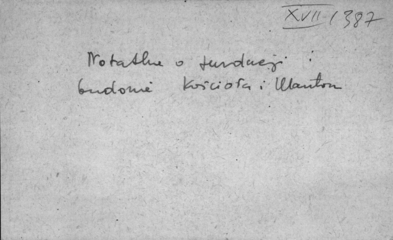 XVII-1387
Notatka o fundacji i
budowie Kościoła i Klasztoru